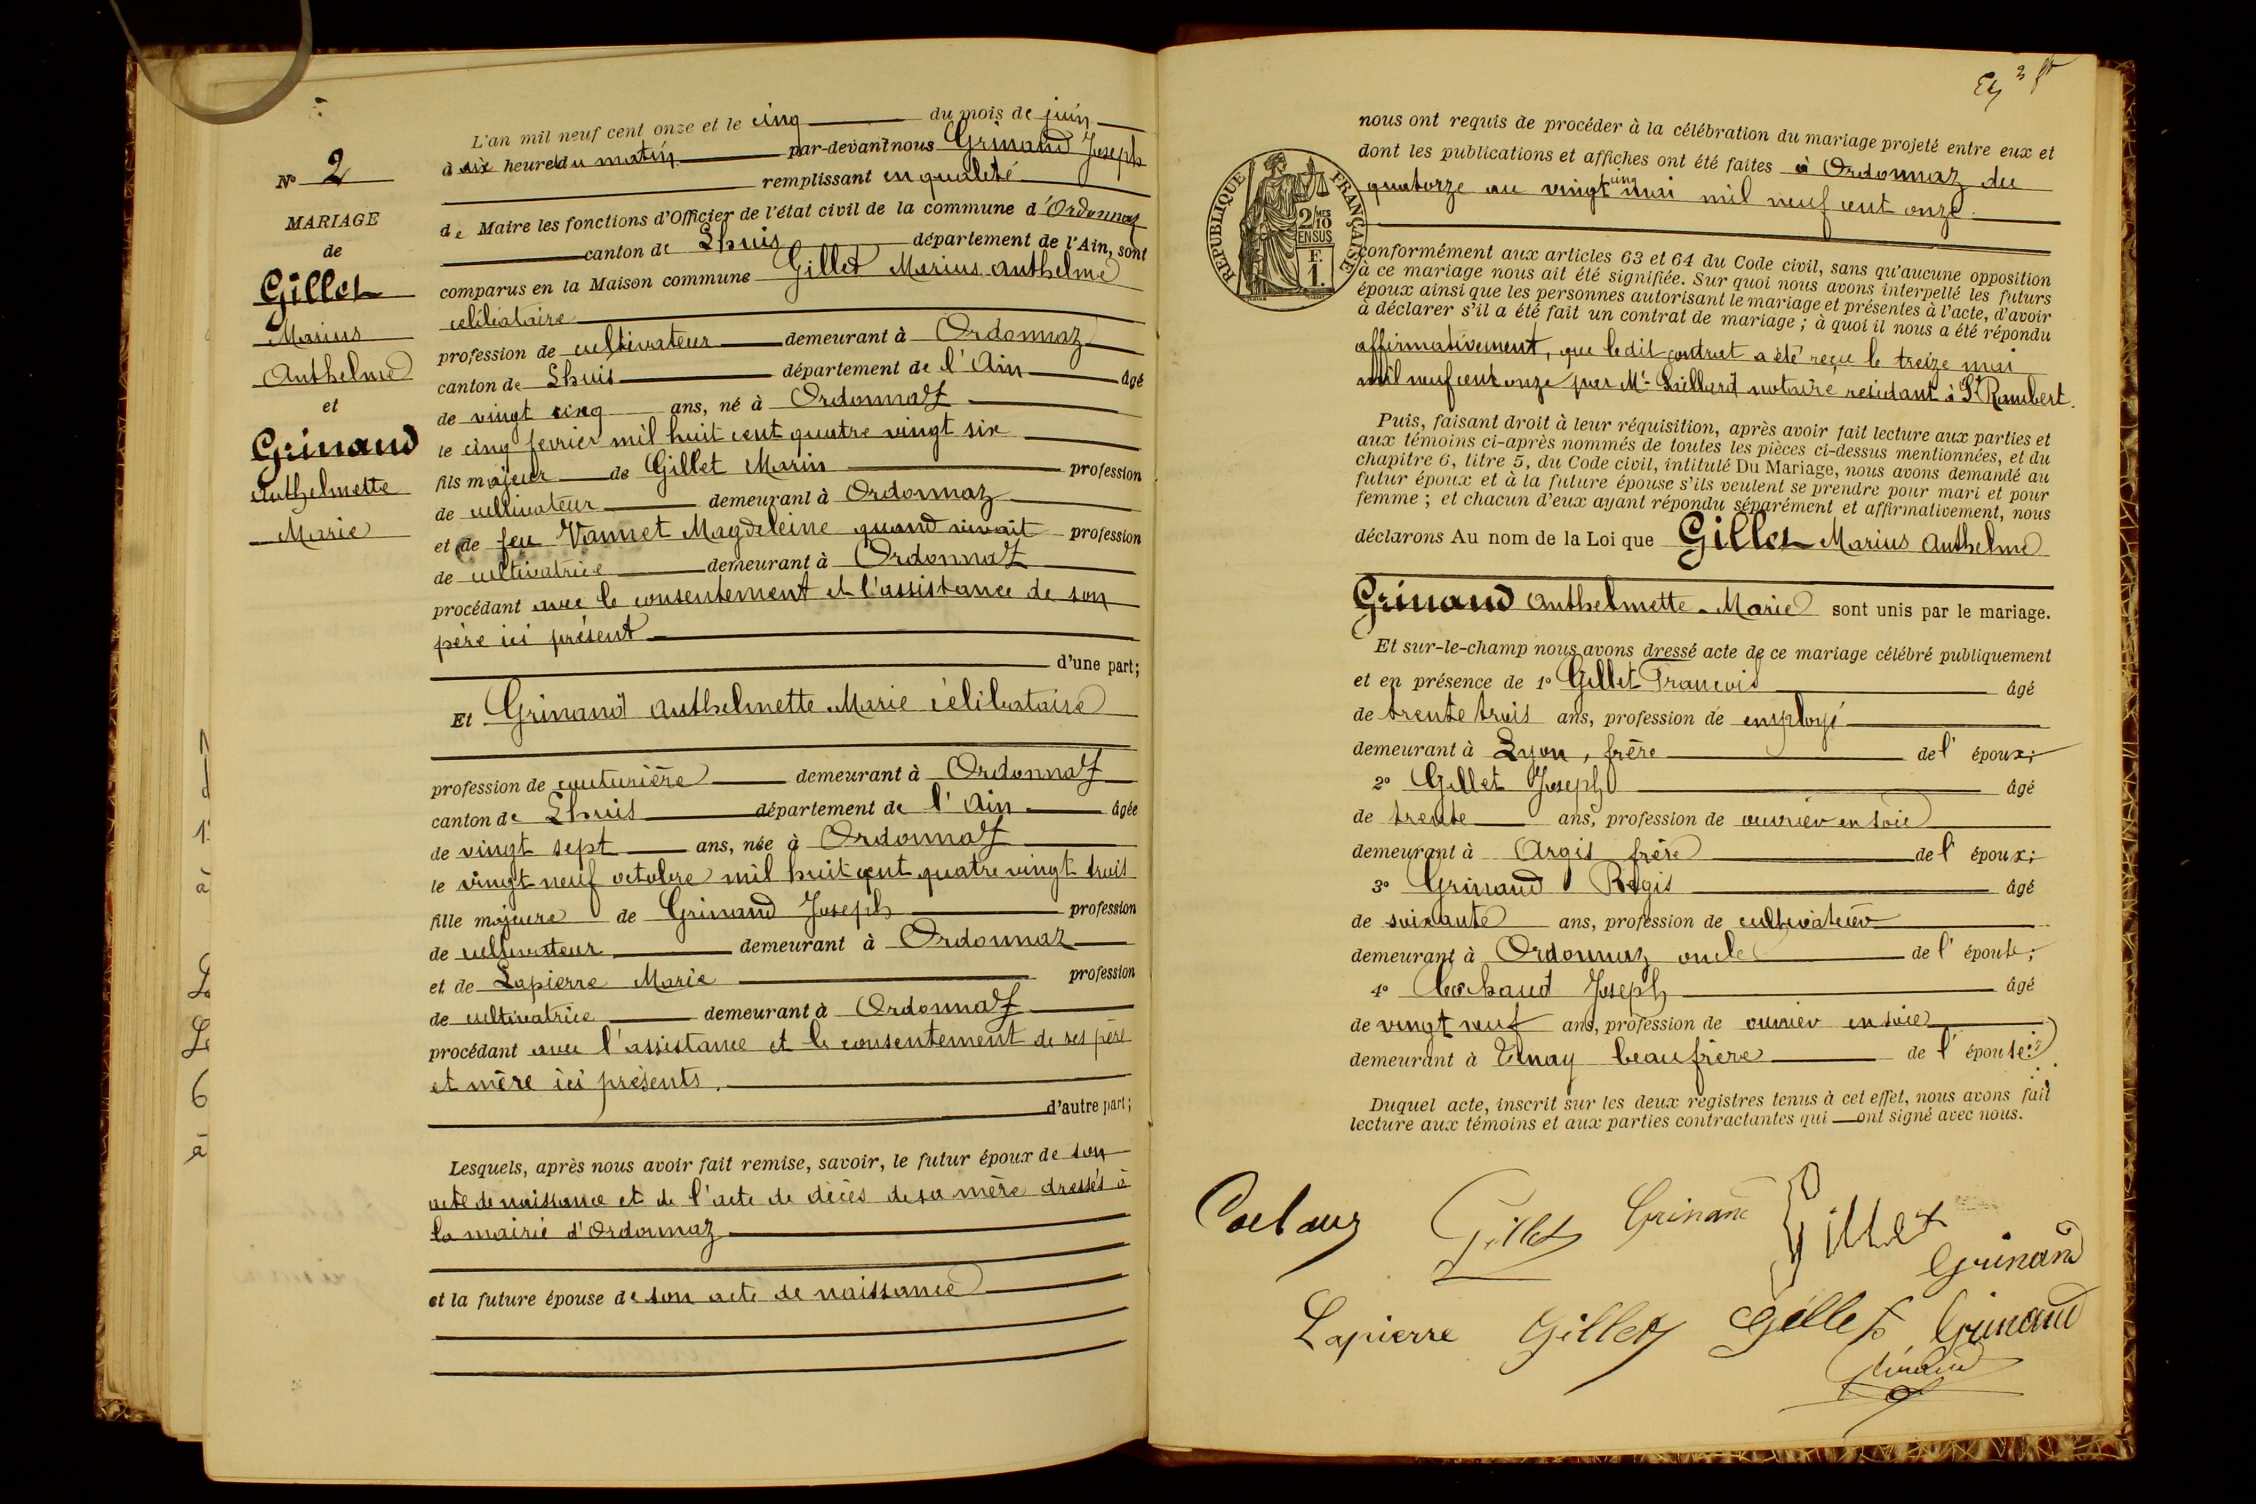 N° 2
MARIAGE
de
Gillet
Marius
Anthelme
et
Grinand
Anthelmette
Marie
L'an mil neuf cent onze et le cinq du mois de juin
à six heures du matin par-devant nous Grinand Joseph
remplissant en qualité
de Maire les fonctions d'Officier de l'état civil de la commune d'Ordonnaz
canton de Lhuis département de l'Ain, sont
comparus en la Maison commune Gillet Marius Anthelme
célibataire
profession de cultivateur demeurant à Ordonnaz
canton de Lhuis département de l'Ain âgé
de vingt cinq ans, né à Ordonnaz
le cinq fevrier mil huit cent quatre vingt six
fils majeur de Gillet Marin profession
de cultivateur demeurant à Ordonnaz
et de feu Vannet Magdeleine quand vivait profession
de cultivatrice demeurant à Ordonnaz
procédant avec le consentement et l'assistance de son
père ici présent
d'une part;
Et Grinand Anthelmette Marie célibataire
profession de couturière demeurant à Ordonnaz
canton de Lhuis département de l'Ain âgée
de vingt sept ans, née à Ordonnaz
le vingt neuf octobre mil huit cent quatre vingt trois
fille majeure de Grinand Joseph profession
de cultivateur demeurant à Ordonnaz
et de Lapierre Marie profession
de cultivatrice demeurant à Ordonnaz
procédant avec l'assistance et le consentement de ses père
et mère ici présents.
d'autre part;
Lesquels, après nous avoir fait remise, savoir, le futur époux de son
acte de naissance et de l'acte de décès de sa mère dressés à
la mairie d'Ordonnaz
et la future épouse de son acte de naissance
nous ont requis de procéder à la célébration du mariage projeté entre eux et
dont les publications et affiches ont été faites à Ordonnaz du
quatorze au vingt cinq mai mil neuf cent onze.
RÉPUBLIQUE FRANÇAISE
2/10 MES
EN SUS
F.
1.
conformément aux articles 63 et 64 du Code civil, sans qu'aucune opposition
à ce mariage nous ait été signifiée. Sur quoi nous avons interpellé les futurs
époux ainsi que les personnes autorisant le mariage et présentes à l'acte, d'avoir
à déclarer s'il a été fait un contrat de mariage; à quoi il nous a été répondu
affirmativement, que ledit contrat a été reçu le treize mai
mil neuf cent onze par Me notaire résidant à St Rambert.
Puis, faisant droit à leur réquisition, après avoir fait lecture aux parties et
aux témoins ci-après nommés de toutes les pièces ci-dessus mentionnées, et du
chapitre 6, titre 5, du Code civil, intitulé Du Mariage, nous avons demandé au
futur époux et à la future épouse s'ils veulent se prendre pour mari et pour
femme; et chacun d'eux ayant répondu séparément et affirmativement, nous
déclarons Au nom de la Loi que Gillet Marius Anthelme
Grinand Anthelmette Marie sont unis par le mariage.
Et sur-le-champ nous avons dressé acte de ce mariage célébré publiquement
et en présence de 1° Gillet François âgé
de trente trois ans, profession de employé
demeurant à Lyon, frère de l'époux;
2° Gillet Joseph âgé
de trente ans, profession de ouvrier en soie
demeurant à Argis frère de l'époux;
3° Grinand Régis âgé
de soixante ans, profession de cultivateur
demeurant à Ordonnaz oncle de l'épouse;
4° Joseph âgé
de vingt neuf ans, profession de ouvrier en soie
demeurant à Tenay beau frère de l'épouse;
Duquel acte, inscrit sur les deux registres tenus à cet effet, nous avons fait
lecture aux témoins et aux parties contractantes qui ont signé avec nous.
Gillet Grinand Gillet
Grinand
Lapierre Gillet Gillet Grinand
Grinand